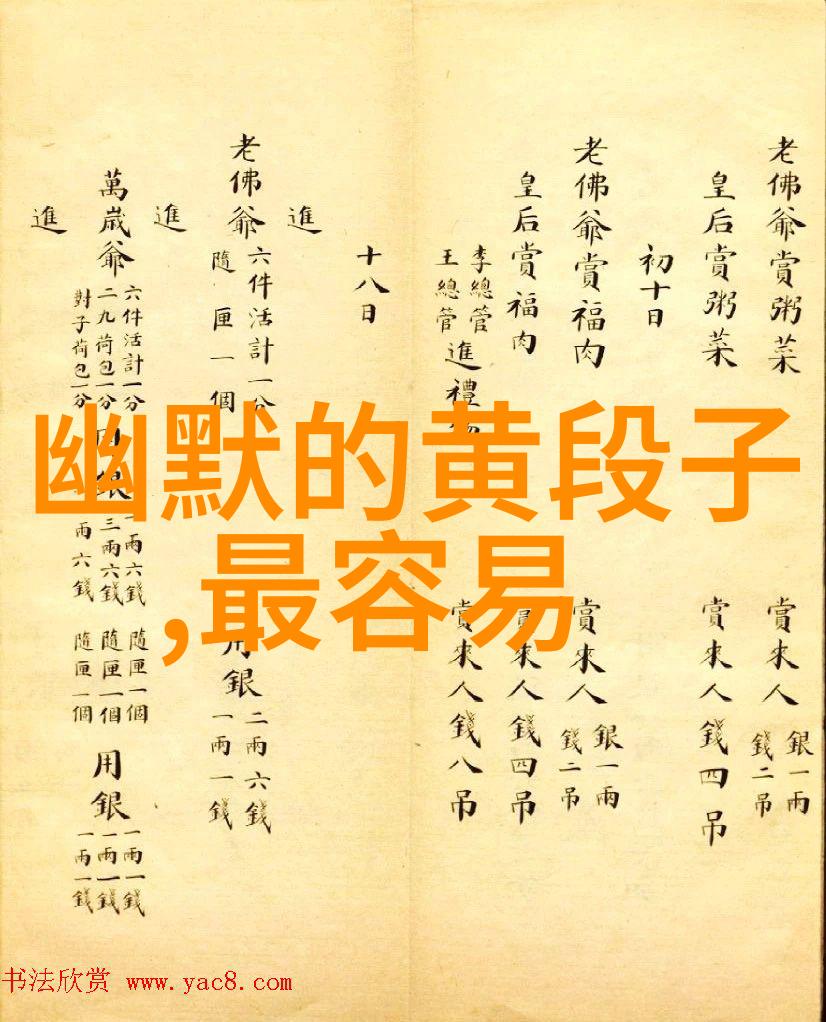 老佛爺賞粥菜 賞來人 銀一兩 錢二吊
皇后賞粥菜 賞來人錢四吊
初十日
老佛爺賞福肉 賞來人 銀一兩 錢二吊
皇后賞福肉 賞來人錢四吊
李總管
王總管
進禮物 賞來人錢八吊
十八日
進
老佛爺 六件活計一分 隨匣一個 用銀 二兩六錢 一兩一錢
進
萬歲爺 六件活計一分 二九荷包一分 對子荷包一分 用銀 一兩六錢 三兩六錢 一兩六錢 隨匣一個 隨匣一個 隨匣一個 用銀 一兩一錢 一兩一錢 一兩一錢
進
幽默的黄段子
,最容易
书法欣赏 www.yac8.com